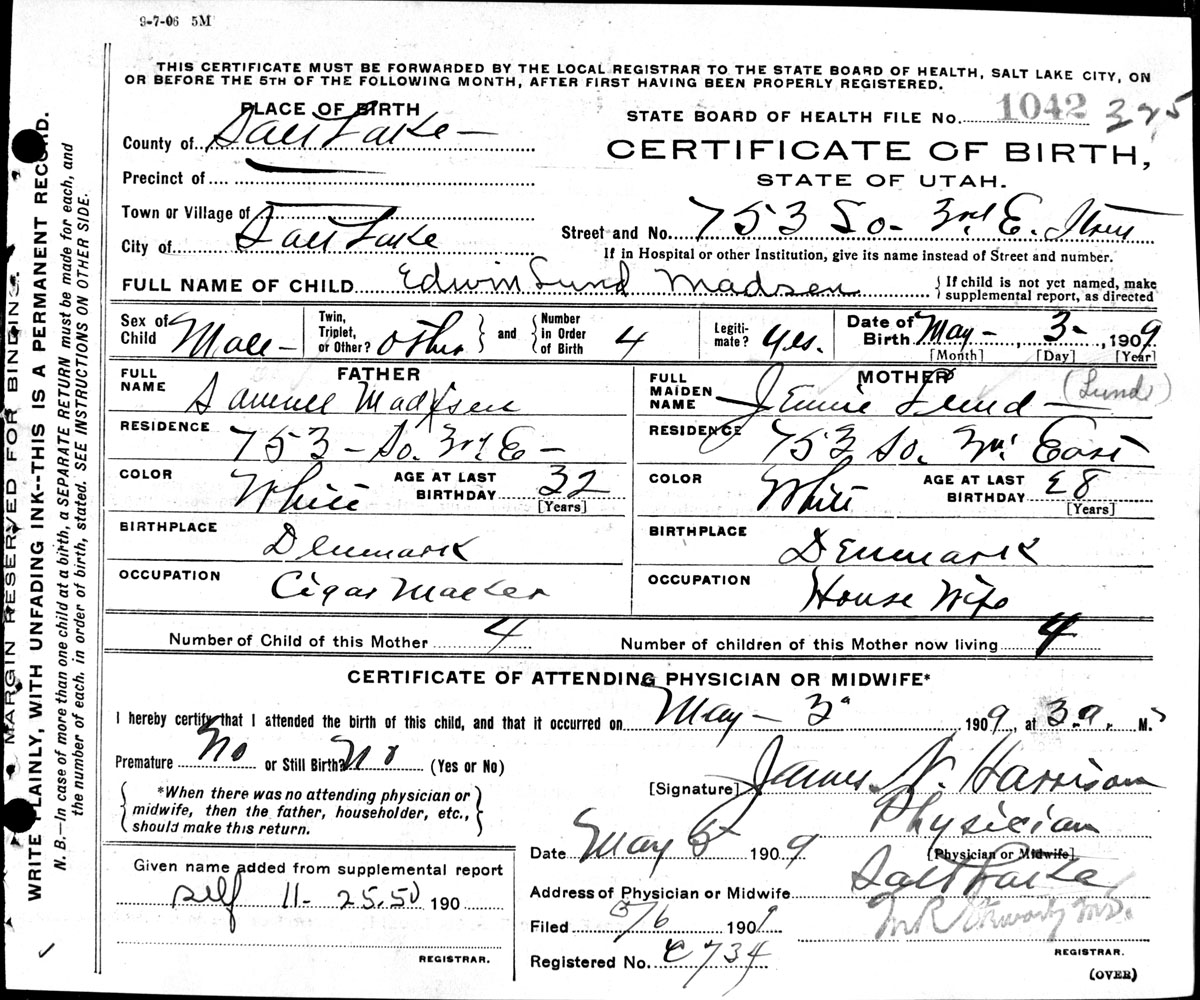 9-7-06 5M
THIS CERTIFICATE MUST BE FORWARDED BY THE LOCAL REGISTRAR TO THE STATE BOARD OF HEALTH, SALT LAKE CITY, ON
OR BEFORE THE 5TH OF THE FOLLOWING MONTH, AFTER FIRST HAVING BEEN PROPERLY REGISTERED.
PLACE OF BIRTH
STATE BOARD OF HEALTH FILE No. 1042 325
County of Salt Lake
CERTIFICATE OF BIRTH,
Precinct of
STATE OF UTAH.
Town or Village of
City of Salt Lake
Street and No. 753 So- 3rd E.
If in Hospital or other Institution, give its name instead of Street and number.
FULL NAME OF CHILD Edwin Lund Madsen
If child is not yet named, make
supplemental report, as directed
Sex of Child Male Twin, Triplet, or Other? Other and Number in Order of Birth 4 Legiti-mate? Yes. Date of Birth May 3, 1909
[Month] [Day] [Year]
FATHER
FULL NAME Samuel Madsen
RESIDENCE 753 - So. 3rd E -
COLOR White AGE AT LAST BIRTHDAY 32
[Years]
BIRTHPLACE Denmark
OCCUPATION Cigar Maker
MOTHER
FULL MAIDEN NAME Jennie Lund (Lund)
RESIDENCE 753 So. 3rd East
COLOR White AGE AT LAST BIRTHDAY 28
[Years]
BIRTHPLACE Denmark
OCCUPATION House Wife
Number of Child of this Mother 4 Number of children of this Mother now living 4
CERTIFICATE OF ATTENDING PHYSICIAN OR MIDWIFE*
I hereby certify that I attended the birth of this child, and that it occurred on May - 3 1909, at 3 a. M.
Premature No or Still Birth? No (Yes or No)
*When there was no attending physician or
midwife, then the father, householder, etc.,
should make this return.
[Signature] James N. Harrison
Physician
[Physician or Midwife]
Date May 5 1909
Address of Physician or Midwife Salt Lake
Filed 5/6 1909
REGISTRAR.
Registered No. C734
(OVER)
Given name added from supplemental report
self 11-25.50 190
REGISTRAR.
MARGIN RESERVED FOR BINDING.
WRITE PLAINLY, WITH UNFADING INK--THIS IS A PERMANENT RECORD.
N. B.—In case of more than one child at a birth, a SEPARATE RETURN must be made for each, and
the number of each, in order of birth, stated. SEE INSTRUCTIONS ON OTHER SIDE.